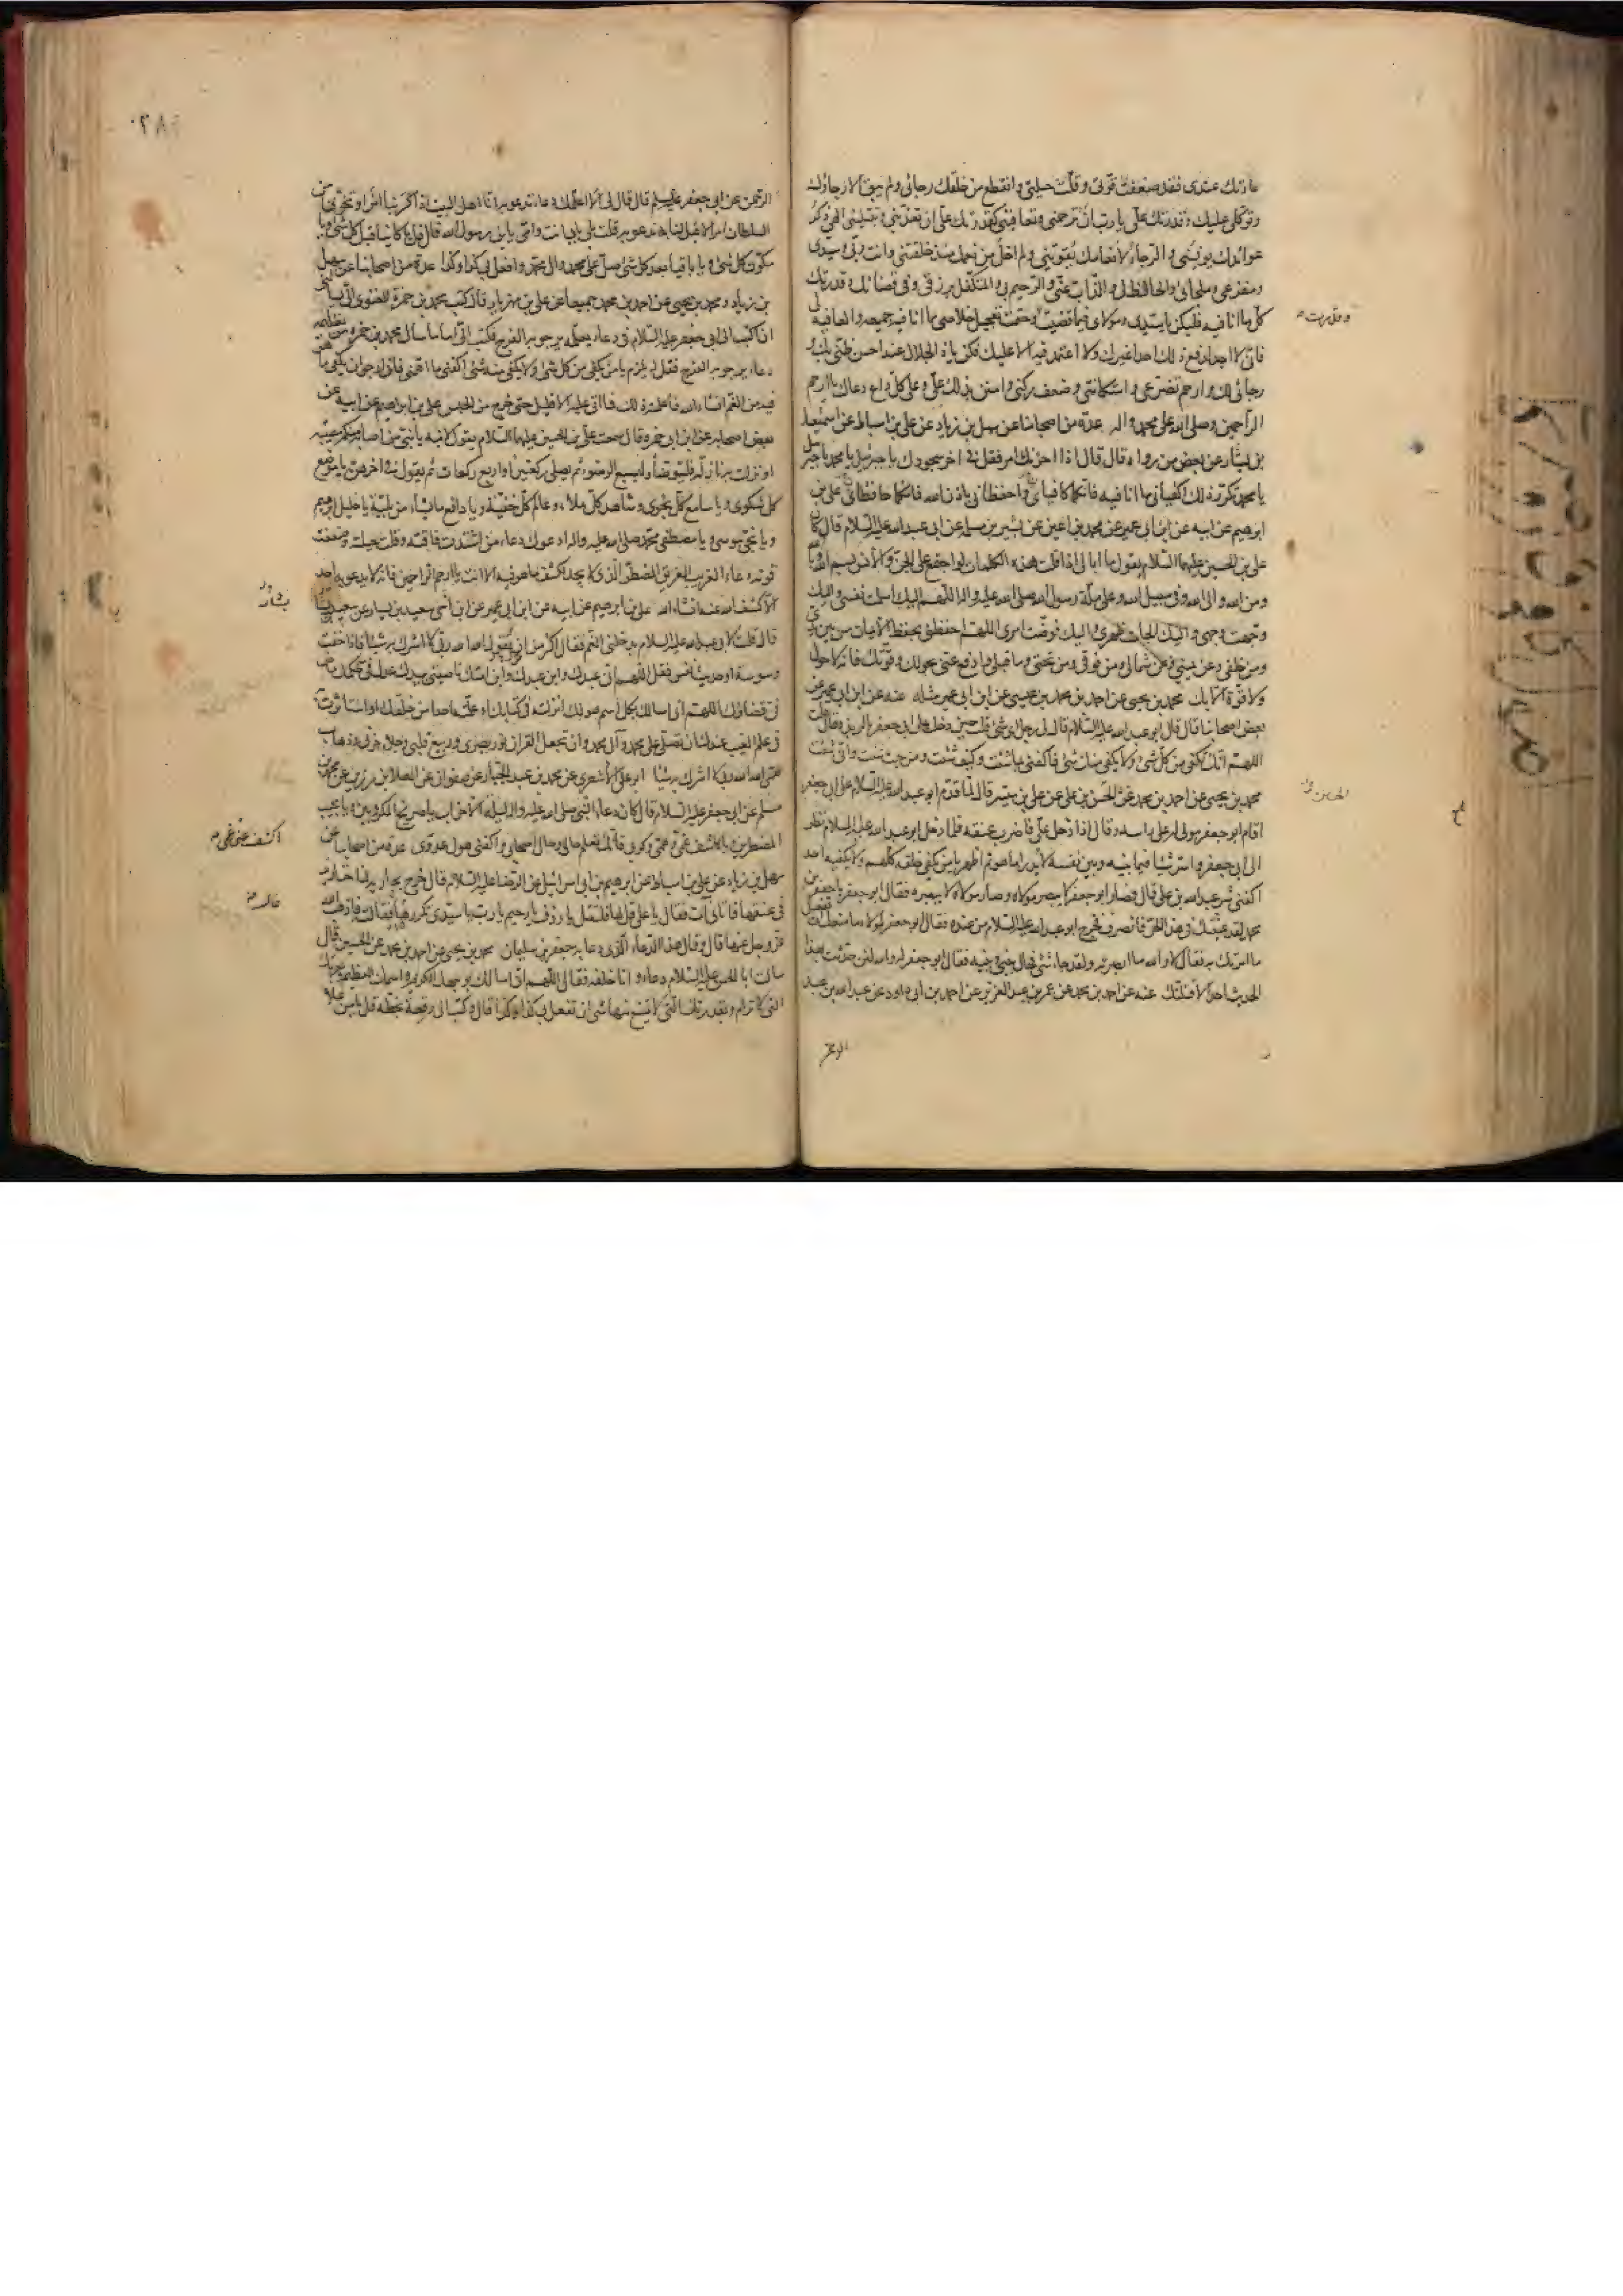 عادتك عندى فقد ضعفت قوتى وقلت حيلتى وانقطع من خلقك رجائى ولم يبق الا رجاؤك
وتوكلى عليك وقدرتك على يا رب ان ترحمنى وتعافينى كقدرتك على ان تعذبنى وتبتلينى الهى ذكر
عوائدك يونسنى والرجاء لانعامك يقوينى ولم اخل من نعمك منذ خلقتنى وانت ربى وسيدى
ومفزعى وملجائى والحافظ لى والذاب عنى والرحيم بى والمتكفل برزقى وفى قضائك وقدرتك
كل ما انا فيه فليكن يا سيدى ومولاى فيما قضيت وحتمت تعجيل خلاصى مما انا فيه جميعه والعافية لى
فانى لا اجد لدفع ذلك احدا غيرك ولا اعتمد فيه الا عليك فكن يا ذا الجلال عند احسن ظنى بك و
رجائى لك وارحم تضرعى واستكانتى وضعف ركنى وامنن بذلك على وعلى كل داع دعاك يا ارحم
الراحمين وصلى الله على محمد واله عدة من اصحابنا عن سهل بن زياد عن على بن اسباط عن اسمعيل
بن يسار عن بعض من رواه قال قال اذا احزنك امر فقل فى اخر سجودك يا جبرئيل يا محمد يا جبرئيل
يا محمد تكرر ذلك اكفيانى ما انا فيه فانكما كافياى واحفظانى باذن الله فانكما حافظاى على بن
ابرهيم عن ابيه عن ابن ابى عمير عن محمد بن اعين عن بشير بن مسلمة عن ابى عبد الله عليه السلام قال كان
على بن الحسين عليهما السلام يقول ما ابالى اذا قلت هذه الكلمات لو اجتمع على الجن والانس بسم الله وبالله
ومن الله والى الله وفى سبيل الله وعلى ملة رسول الله صلى الله عليه واله اللهم اليك اسلمت نفسى واليك
وجهت وجهى واليك الجات ظهرى واليك فوضت امرى اللهم احفظنى بحفظ الايمان من بين يدى
ومن خلفى وعن يمينى وعن شمالى ومن فوقى ومن تحتى وما قبلى وادفع عنى بحولك وقوتك فانه لا حول
ولا قوة الا بك محمد بن يحيى عن احمد بن محمد بن عيسى عن ابن ابى عمير مثله عنه عن ابن ابى عمير عن
بعض اصحابنا قال قال ابو عبد الله عليه السلام قال لى رجل اى شئ قلت حين دخلت على ابى جعفر بالربذة قال قلت
اللهم انك تكفى من كل شئ ولا يكفى منك شئ فاكفنى بما شئت وكيف شئت ومن حيث شئت وانى شئت
محمد بن يحيى عن احمد بن محمد عن الحسن بن على عن على بن ميسر قال لما قدم ابو عبد الله عليه السلام على ابى جعفر
اقام ابو جعفر مولى له على راسه وقال له اذا دخل على فاضرب عنقه فلما دخل ابو عبد الله عليه السلام نظر
الى ابى جعفر واسر شيئا فيما بينه وبين نفسه لا يدرى ما هو ثم اظهر يا من يكفى خلقه كلهم ولا يكفيه احد
اكفنى شر عبد الله بن على قال فصار ابو جعفر لا يبصر مولاه وصار مولاه لا يبصره فقال ابو جعفر يا جعفر بن
محمد لقد عييتك فى هذا الحر فانصرف فخرج ابو عبد الله عليه السلام من عنده فقال ابو جعفر لمولاه ما منعك ان تفعل
ما امرتك به فقال لا والله ما ابصرته ولقد جاء شئ فحال بينى وبينه فقال ابو جعفر له والله لئن حدثت بهذا
الحديث احدا لاقتلنك عنه عن احمد بن محمد عن عمر بن عبد العزيز عن احمد بن ابى داود عن عبد الله بن عبد
الرحمن
وقدرت
الحسين
الرحمن عن ابى جعفر عليه السلم قال قال لى الا اعلمك دعاء تدعو به انا اهل البيت اذا كربنا امر او تخوفنا من
السلطان امرا لا قبل لنا به ندعو به قلت بلى بابى انت وامى يا ابن رسول الله قال قل يا كائنا قبل كل شئ ويا
مكون كل شئ ويا باقيا بعد كل شئ صل على محمد وال محمد وافعل بى كذا وكذا عدة من اصحابنا عن سهل
بن زياد ومحمد بن يحيى عن احمد بن محمد جميعا عن على بن مهزيار قال كتب محمد بن حمزة الغنوى الى يسالنى
ان اكتب الى ابى جعفر عليه السلام فى دعاء يعلمه يرجو به الفرج فكتب الى اما ما سال محمد بن حمزه من تعليمه
دعاء يرجو به الفرج فقل له يلزم يا من يكفى من كل شئ ولا يكفى منه شئ اكفنى ما اهمنى فانى ارجو ان يكفى ما هو
فيه من الغم انشاء الله فاعلمته ذلك فما اتى عليه الا قليل حتى خرج من الحبس على بن ابرهيم عن ابيه عن
بعض اصحابه عن ابن ابى حمزة قال سمعت على بن الحسين عليهما السلام يقول لابنه يا بنى من اصابه منكم مصيبة
او نزلت به نازلة فليتوضأ وليسبغ الوضوء ثم يصلى ركعتين او اربع ركعات ثم يقول فى اخرهن يا موضع
كل شكوى ويا سامع كل نجوى وشاهد كل ملاء وعالم كل خفية ويا دافع ما يشاء من بلية يا خليل ابرهيم
ويا نجى موسى ويا مصطفى محمد صلى الله عليه واله ادعوك دعاء من اشتدت فاقته وقلت حيلته وضعفت
قوته دعاء الغريب الغريق المضطر الذى لا يجد لكشف ما هو فيه الا انت يا ارحم الراحمين فانه لا يدعو به احد
الا كشف الله عنه انشاء الله على بن ابرهيم عن ابيه عن ابن ابى عمير عن ابن اخى سعيد بن يسار عن سعيد بن يسار
قال قلت لابى عبد الله عليه السلام يدخلنى الغم فقال اكثر من ان تقول الله الله ربى لا اشرك به شيئا فاذا خفت
وسوسة او حديث نفس فقل اللهم انى عبدك وابن عبدك وابن امتك ناصيتى بيدك عدل فى حكمك ماض
فى قضاؤك اللهم انى اسالك بكل اسم هو لك انزلته فى كتابك او علمته احدا من خلقك او استاثرت به
فى علم الغيب عندك ان تصلى على محمد وآل محمد وان تجعل القران نور بصرى وربيع قلبى وجلاء حزنى وذهاب
همى الله الله ربى لا اشرك به شيئا ابو على الاشعرى عن محمد بن عبد الجبار عن صفوان عن العلا بن رزين عن محمد بن
مسلم عن ابى جعفر عليه السلام قال كان دعاء النبى صلى الله عليه واله ليلة الاحزاب يا صريخ المكروبين ويا مجيب
المضطرين يا كاشف غمى وهمى وكربى فانك تعلم حالى وحال اصحابى واكفنى هول عدوى عدة من اصحابنا عن
سهل بن زياد عن على بن اسباط عن ابرهيم بن ابى اسرائيل عن الرضا عليه السلام قال خرج بجارية لنا خنازير
فى عنقها فاتانى آت فقال يا على قل لها فلتقل يا رؤف يا رحيم يا رب يا سيدى تكرره قال فقالت فاذهب الله
عز وجل عنها قال وقال هذا الدعاء الذى دعا به جعفر بن سليمان محمد بن يحيى عن احمد بن محمد عن الحسين قال
سالت ابا الحسن عليه السلام دعاء وانا خلفه فقال اللهم انى اسالك بوجهك الكريم واسمك العظيم وبعزتك
التى لا ترام وبقدرتك التى لا يمتنع منها شئ ان تفعل بى كذا وكذا قال وكتب الى رقعة بخطه قل يا من علا
بشار
اكشف عنى غمى
خالد